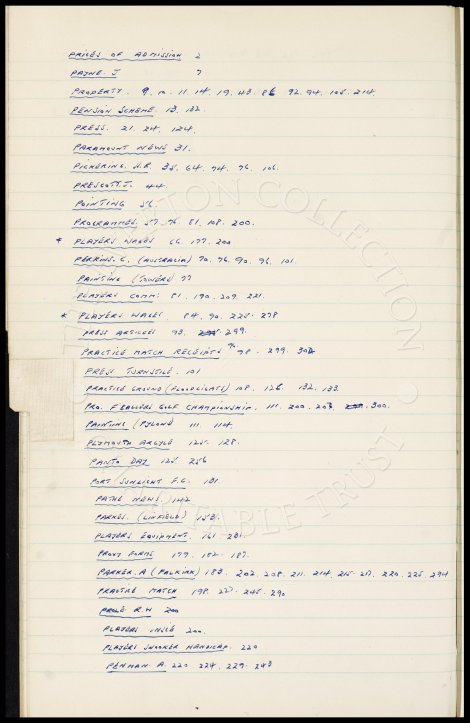 PRICES OF ADMISSION 2
PAYNE. J 7
PROPERTY. 9. 10. 11. 14. 19. 43. 86 92. 94. 105. 214
PENSION SCHEME. 13. 132.
PRESS. 21. 24. 124.
PARAMOUNT NEWS 31.
PICKERING. 35. 64. 74. 76. 106.
PRESCOTT. J. 44.
POINTING 56.
PROGRAMMES. 57. 76. 81. 108. 200.
* PLAYERS WAGES 66. 177. 200
PERKINS. C. (AUSTRALIA) 70. 76. 90. 96. 101.
PAINTING (TOWERS) 77
PLAYERS COMM: 81. 190. 209. 221.
* PLAYERS WAGES. 84. 90. 225. 278
PRESS ARTICLES 93. 299.
PRACTICE MATCH RECEIPTS 98. 299. 302
PRESS TURNSTILE. 101
PRACTICE GROUND (FLOODLIGHTS) 108. 126. 132. 133.
PRO. F'BALLERS GOLF CHAMPIONSHIP. 111. 200. 203. 300.
PAINTING (PYLONS) 111. 114.
PLYMOUTH ARGYLE 125. 128.
PANTO DAY 125. 256
PORT SUNLIGHT F.C. 131.
PATHE NEWS. 142
PARKES. (LINFIELD) 153.
PLAYERS EQUIPMENT. 161. 281.
PROXY FORMS 179. 182. 187.
PARKER. A (FALKIRK) 183. 202. 208. 211. 214. 215. 217. 220. 225. 294
PRACTICE MATCH 198. 221. 245. 290
PROLE. R.W 200
PLAYERS INSCE 200.
PLAYERS SNOOKER HANDICAP. 220
PENMAN. A. 220. 224. 229. 243
TON COLLECTION
ABLE TRUST